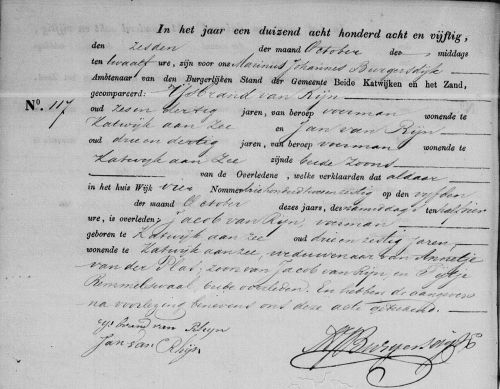 In het jaar een duizend acht honderd acht en vijftig,
den zesden der maand October des middags
ten twaalf ure, zijn voor ons Marinus Johannes Burgersdijk
Ambtenaar van den Burgerlijken Stand der Gemeente Beide Katwijken en het Zand,
gecompareerd: IJsbrand van Rijn
No. 117
oud zes en dertig jaren, van beroep voerman wonende te
Katwijk aan Zee en Jan van Rijn
oud drie en dertig jaren, van beroep voerman wonende te
Katwijk aan Zee zijnde beide Zoons
van de Overledene, welke verklaarden dat aldaar
in het huis Wijk vier Nommer op den vijfden
der maand October dezes jaars, des namiddags ten
ure, is overleden: Jacob van Rijn, voerman
geboren te Katwijk aan Zee oud drie en zestig Jaren,
wonende te Katwijk aan Zee, weduwenaar van Annetje
van der Plas; zoon van Jacob van Rijn, en
Remmelswaal, beide overleden. En hebben de aangevers
na voorlezing benevens ons deze acte geteekend.
ijsbrand van Rhijn
Jan van Rhijn
MJBurgersdijk